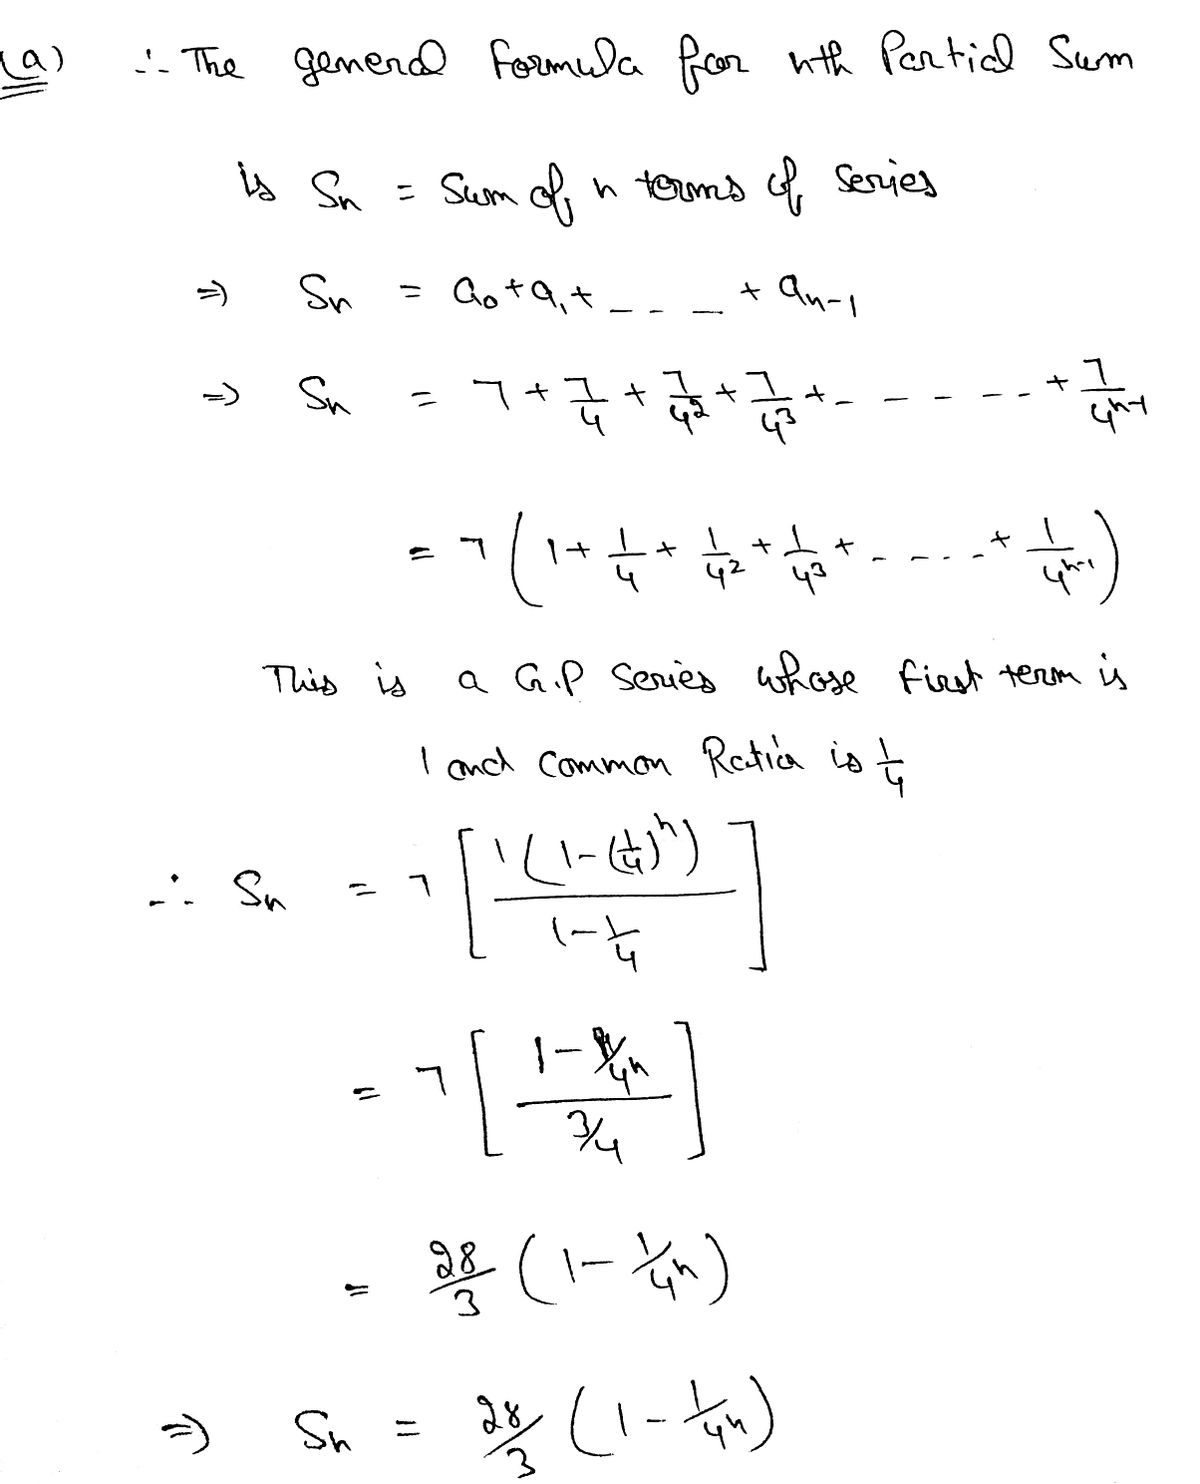 (a) ∴ The general formula for nth Partial Sum
is Sn = Sum of n terms of Series
⇒ Sn = a₀ + a₁ + - - - - + aₙ₋₁
⇒ Sn = 7 + 7/4 + 7/4² + 7/4³ + - - - - - - + 7/4ⁿ⁻¹
= 7 ( 1 + 1/4 + 1/4² + 1/4³ + - - - - + 1/4ⁿ⁻¹ )
This is a G.P Series whose first term is
1 and common Ratio is 1/4
∴ Sn = 7 [ 1 ( 1 - (1/4)ⁿ ) / 1 - 1/4 ]
= 7 [ 1 - 1/4ⁿ / 3/4 ]
= 28/3 ( 1 - 1/4ⁿ )
⇒ Sn = 28/3 ( 1 - 1/4ⁿ )